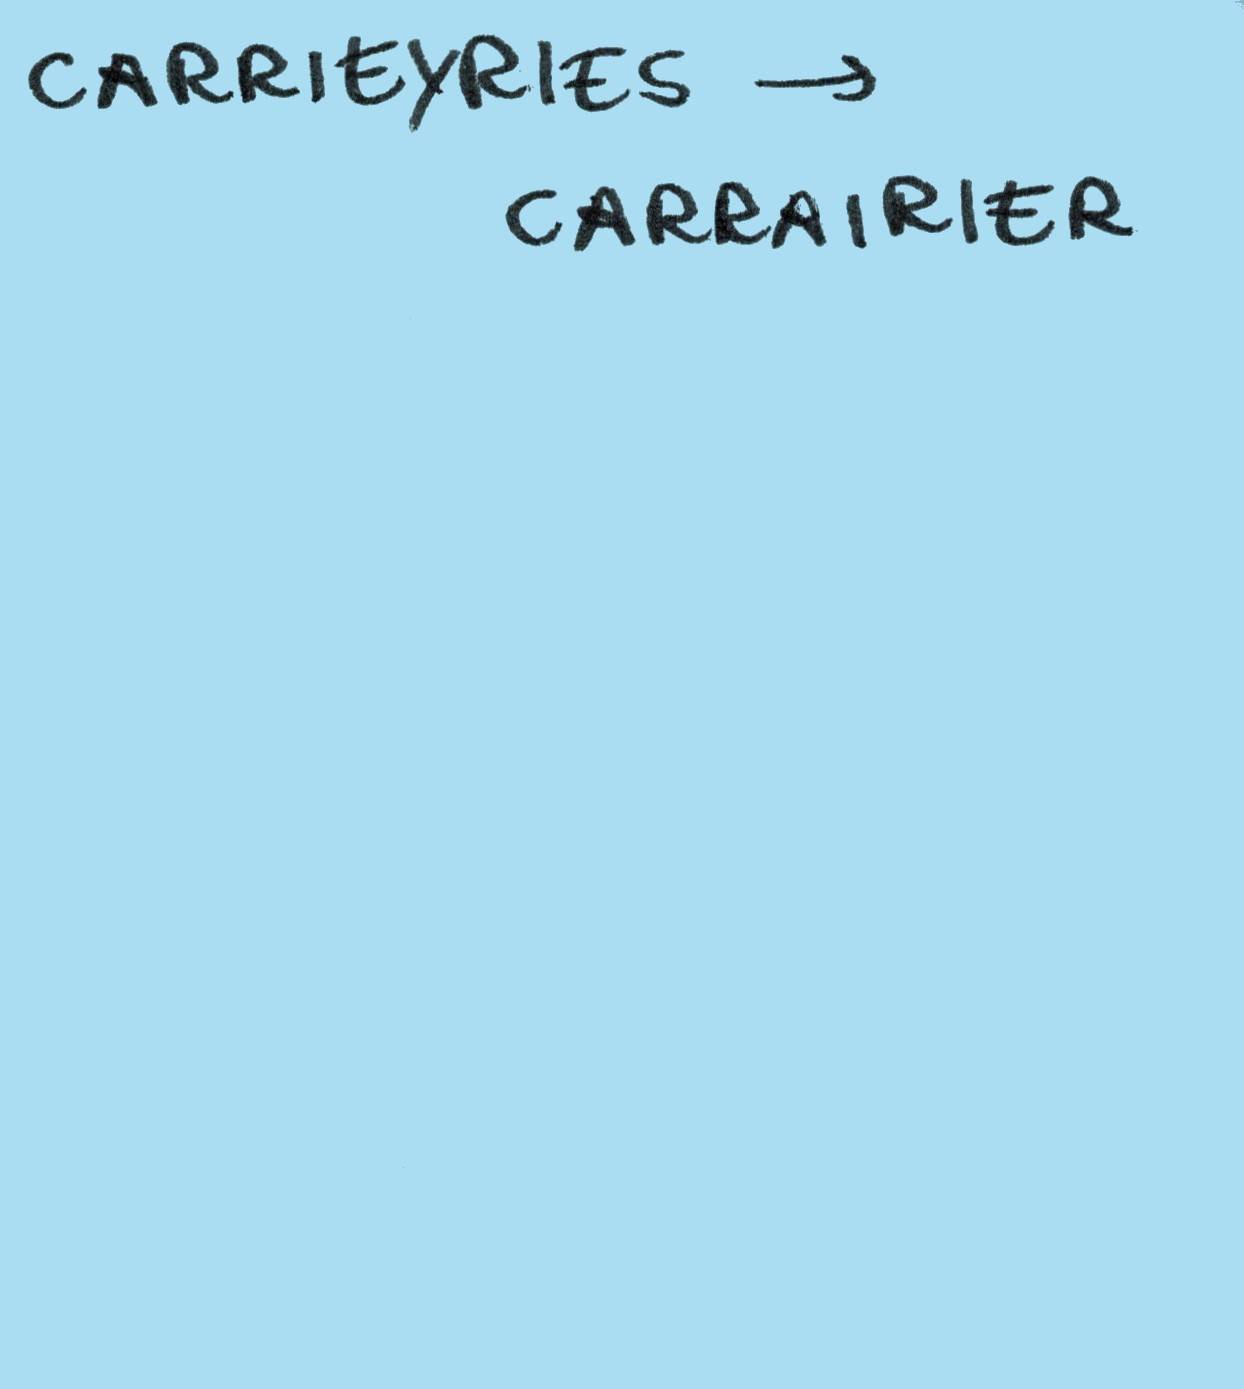 CARRIEYRIES →
CARRAIRIER